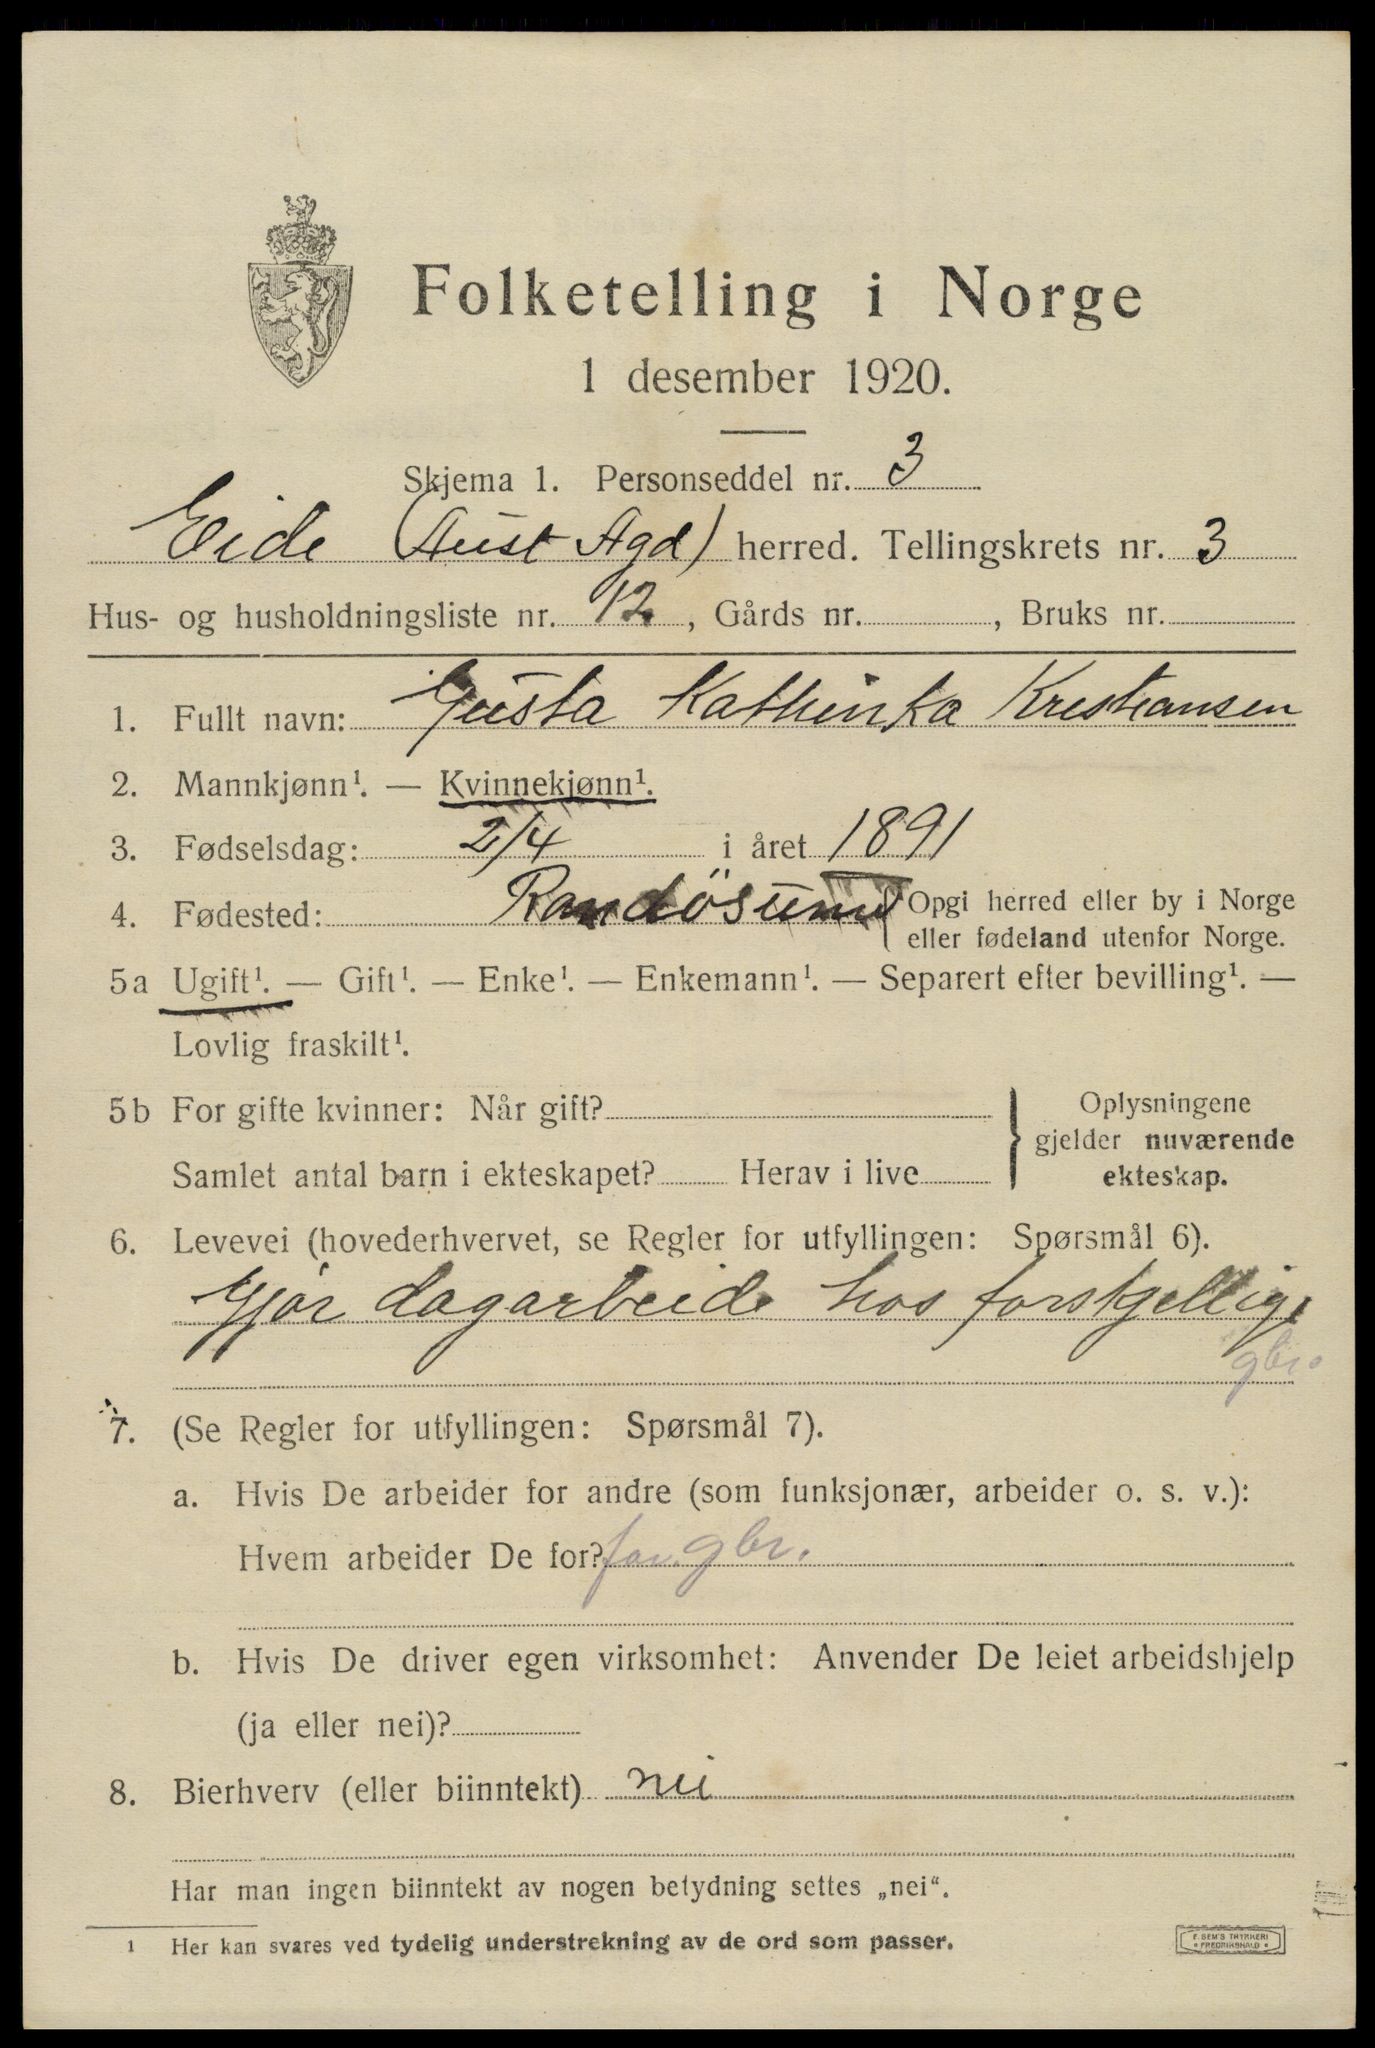 Folketelling i Norge
1 desember 1920.
Skjema 1. Personseddel nr. 3
Eide (Aust Agd) herred. Tellingskrets nr. 3
Hus- og husholdningsliste nr. 12, Gårds nr. , Bruks nr.
1. Fullt navn: Gusta Kathinka Kristiansen
2. Mannkjønn¹. — Kvinnekjønn¹.
3. Fødselsdag: 2/4 i året 1891
4. Fødested: Randösund { Opgi herred eller by i Norge
eller fødeland utenfor Norge.
5a Ugift¹. — Gift¹. — Enke¹. — Enkemann¹. — Separert efter bevilling¹. —
Lovlig fraskilt¹.
5b For gifte kvinner: Når gift?
Samlet antal barn i ekteskapet? Herav i live
} Oplysningene
gjelder nuværende
ekteskap.
6. Levevei (hovederhvervet, se Regler for utfyllingen: Spørsmål 6).
Gjør dagarbeide hos forskjellige
gbr.
7. (Se Regler for utfyllingen: Spørsmål 7).
a. Hvis De arbeider for andre (som funksjonær, arbeider o. s. v.):
Hvem arbeider De for? for. gbr.
b. Hvis De driver egen virksomhet: Anvender De leiet arbeidshjelp
(ja eller nei)?
8. Bierhverv (eller biinntekt) nei
Har man ingen biinntekt av nogen betydning settes „nei“.
¹ Her kan svares ved tydelig understrekning av de ord som passer.
E. SEM'S TRYKKERI
• FREDRIKSHALD •